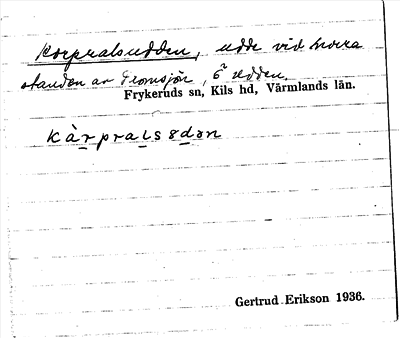 Korpralsudden, udde vid norra
stranden av Tronsjön, ö Udden,
Frykeruds sn, Kils hd, Värmlands län.
kàrpralsødən
Gertrud Erikson 1936.